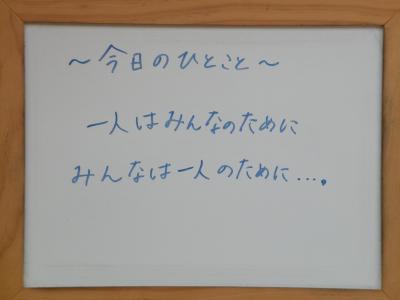 ～今日のひとこと～
一人はみんなのために
みんなは一人のために….